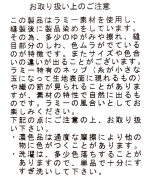 お取り扱い上のご注意
この製品はラミー素材を使用し、
縫製後に製品染めをしています。
その為、多少のゆがみや擦れ、縫
目部分のしわ、色ムラがでている
のが特徴です。またサイズや色合
いの違いが出ることがございます。
ラミー特有のネップ（糸が小さな
玉になって生地表面に現れるもの）
や織の節が見られることがありま
すが、素材の特性で自然に出るも
のです。ラミーの風合いとしてお
楽しみください。
下記の点にご注意の上、お取り扱
いください。
・濃色品は過度な摩擦により他の
物に色がつくことがあります。
・洗濯は、多少色落ちすることが
ありますので、単品で十分にす
すぎ洗いして下さい。